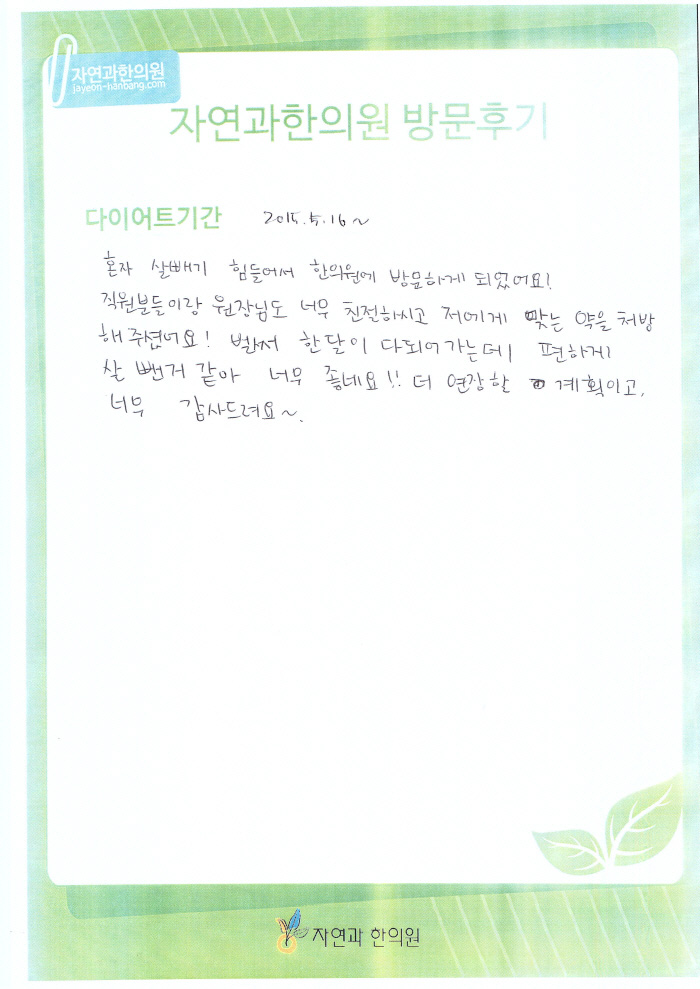 자연과한의원
jayeon-hanbang.com
자연과한의원 방문후기
다이어트기간 2015.5.16~
혼자 살빼기 힘들어서 한의원에 방문하게 되었어요!
직원분들이랑 원장님도 너무 친절하시고 저에게 맞는 약을 처방
해 주셨어요! 벌써 한달이 다되어가는데 편하게
살 뺀거 같아 너무 좋네요!! 더 연장할 계획이고,
너무 감사드려요~.
자연과 한의원